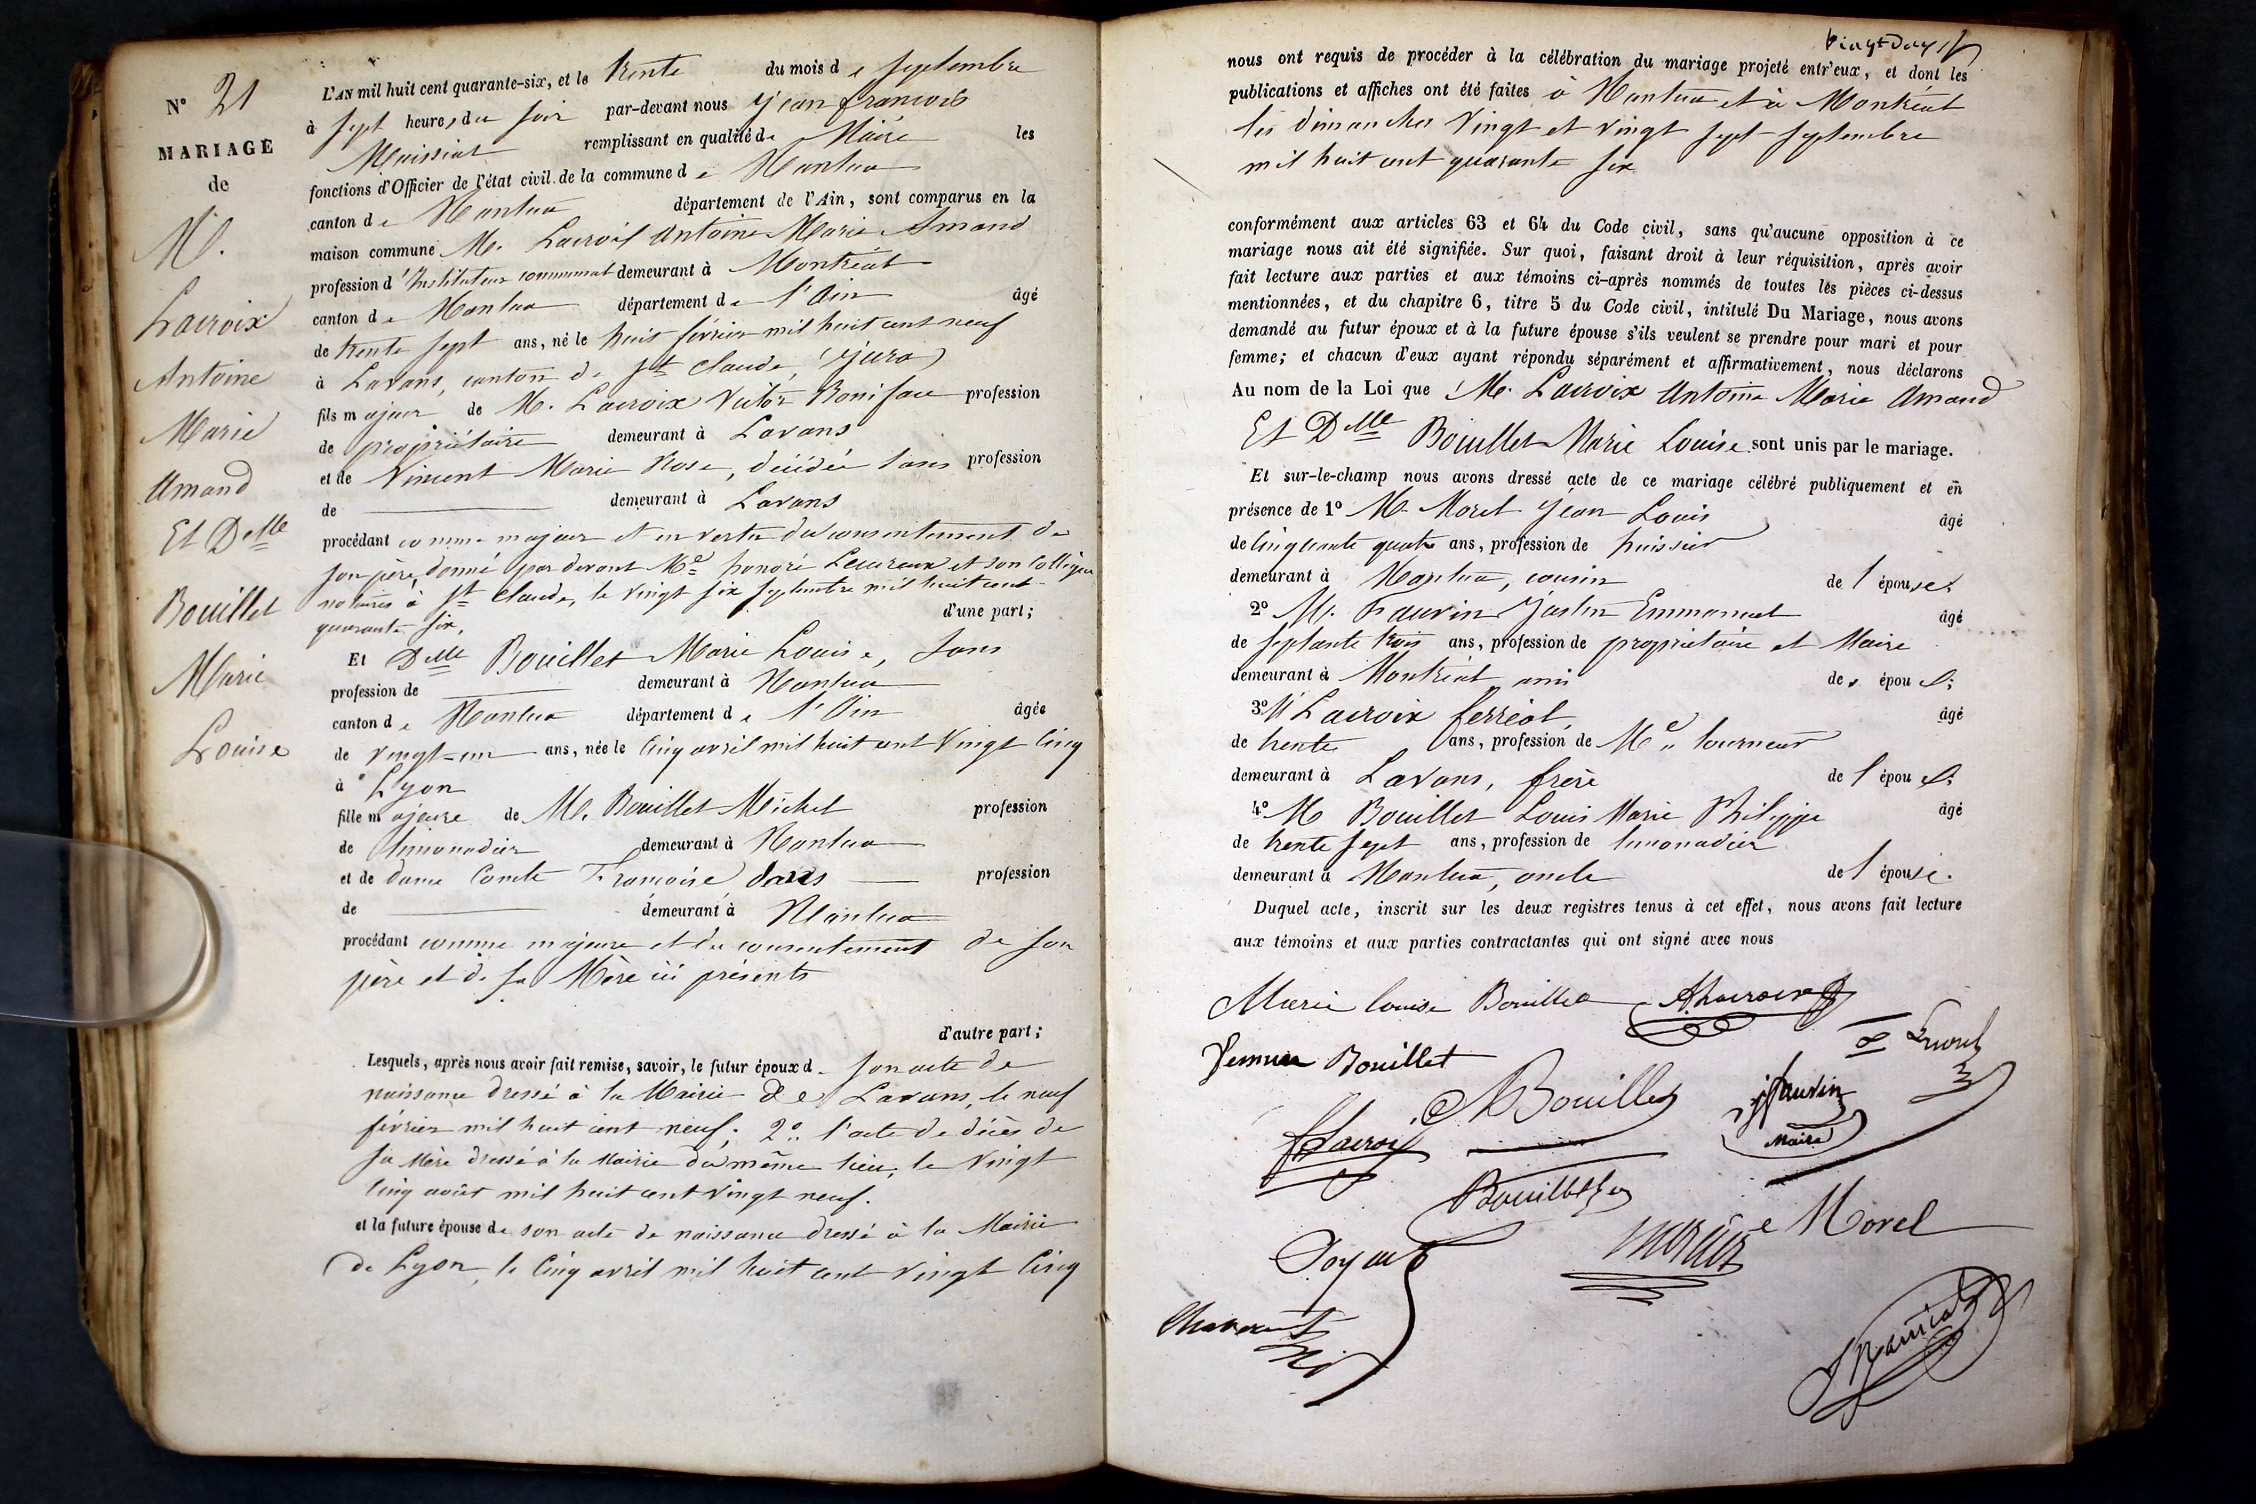 N° 21
MARIAGE
de
M.
Lacroix
Antoine
Marie
Amand
Et Delle
Bouillet
Marie
Louise
L'AN mil huit cent quarante-six, et le trente du mois de septembre
à sept heures du soir par-devant nous Jean françois
Maissiat remplissant en qualité de Maire les
fonctions d'Officier de l'état civil de la commune de Nantua
canton de Nantua département de l'Ain, sont comparus en la
maison commune M. Lacroix Antoine Marie Amand
profession d'Instituteur communal demeurant à Montréal
canton de Nantua département de l'Ain âgé
de trente sept ans, né le huit février mil huit cent neuf
à Lavans, canton de St Claude, (Jura)
fils majeur de M. Lacroix Victor Boniface profession
de propriétaire demeurant à Lavans
et de Vincent Marie Rose, décédée sans profession
de demeurant à Lavans
procédant comme majeur et en vertu du consentement de
son père, donné par devant Me honoré Lecureux et son Collègue
notaires à St Claude, le vingt six septembre mil huit cent
quarante six. d'une part;
Et Delle Bouillet Marie Louise, sans
profession de demeurant à Nantua
canton de Nantua département de l'Ain âgée
de vingt-un ans, née le cinq avril mil huit cent vingt cinq
à Lyon
fille majeure de M. Bouillet Michel profession
de limonadier demeurant à Nantua
et de dame Comte Françoise sans profession
de demeurant à Nantua
procédant comme majeure et du consentement de son
père et de sa Mère ici présents
d'autre part;
Lesquels, après nous avoir fait remise, savoir, le futur époux de son acte de
naissance dressé à la Mairie de Lavans, le neuf
février mil huit cent neuf; 2° l'acte de décès de
sa Mère dressé à la Mairie du même lieu, le vingt
cinq août mil huit cent vingt neuf.
et la future épouse de son acte de naissance dressé à la Mairie
de Lyon, le cinq avril mil huit cent vingt cinq
nous ont requis de procéder à la célébration du mariage projeté entr'eux, et dont les
publications et affiches ont été faites à Nantua et à Montréal
les dimanches vingt et vingt sept septembre
mil huit cent quarante six
conformément aux articles 63 et 64 du Code civil, sans qu'aucune opposition à ce
mariage nous ait été signifiée. Sur quoi, faisant droit à leur réquisition, après avoir
fait lecture aux parties et aux témoins ci-après nommés de toutes les pièces ci-dessus
mentionnées, et du chapitre 6, titre 5 du Code civil, intitulé Du Mariage, nous avons
demandé au futur époux et à la future épouse s'ils veulent se prendre pour mari et pour
femme; et chacun d'eux ayant répondu séparément et affirmativement, nous déclarons
Au nom de la Loi que M. Lacroix Antoine Marie Amand
Et Delle Bouillet Marie Louise sont unis par le mariage.
Et sur-le-champ nous avons dressé acte de ce mariage célébré publiquement et en
présence de 1° M. Morel Jean Louis âgé
de cinquante quatre ans, profession de huissier
demeurant à Nantua, cousin de l'épouse;
2° M. Fauvin Justin Emmanuel âgé
de septante trois ans, profession de propriétaire et Maire
demeurant à Montréal ami de s époux;
3° M Lacroix ferréol, âgé
de trente ans, profession de Md tourneur
demeurant à Lavans, frère de l'époux;
4° M Bouillet Louis Marie Philippe âgé
de trente sept ans, profession de limonadier
demeurant à Nantua, oncle de l'épouse.
Duquel acte, inscrit sur les deux registres tenus à cet effet, nous avons fait lecture
aux témoins et aux parties contractantes qui ont signé avec nous
Marie louise Bouillet ALacroix
Bouillet
MBouillet
Fauvin
Maire
fLacroix
Bouillet
Morel